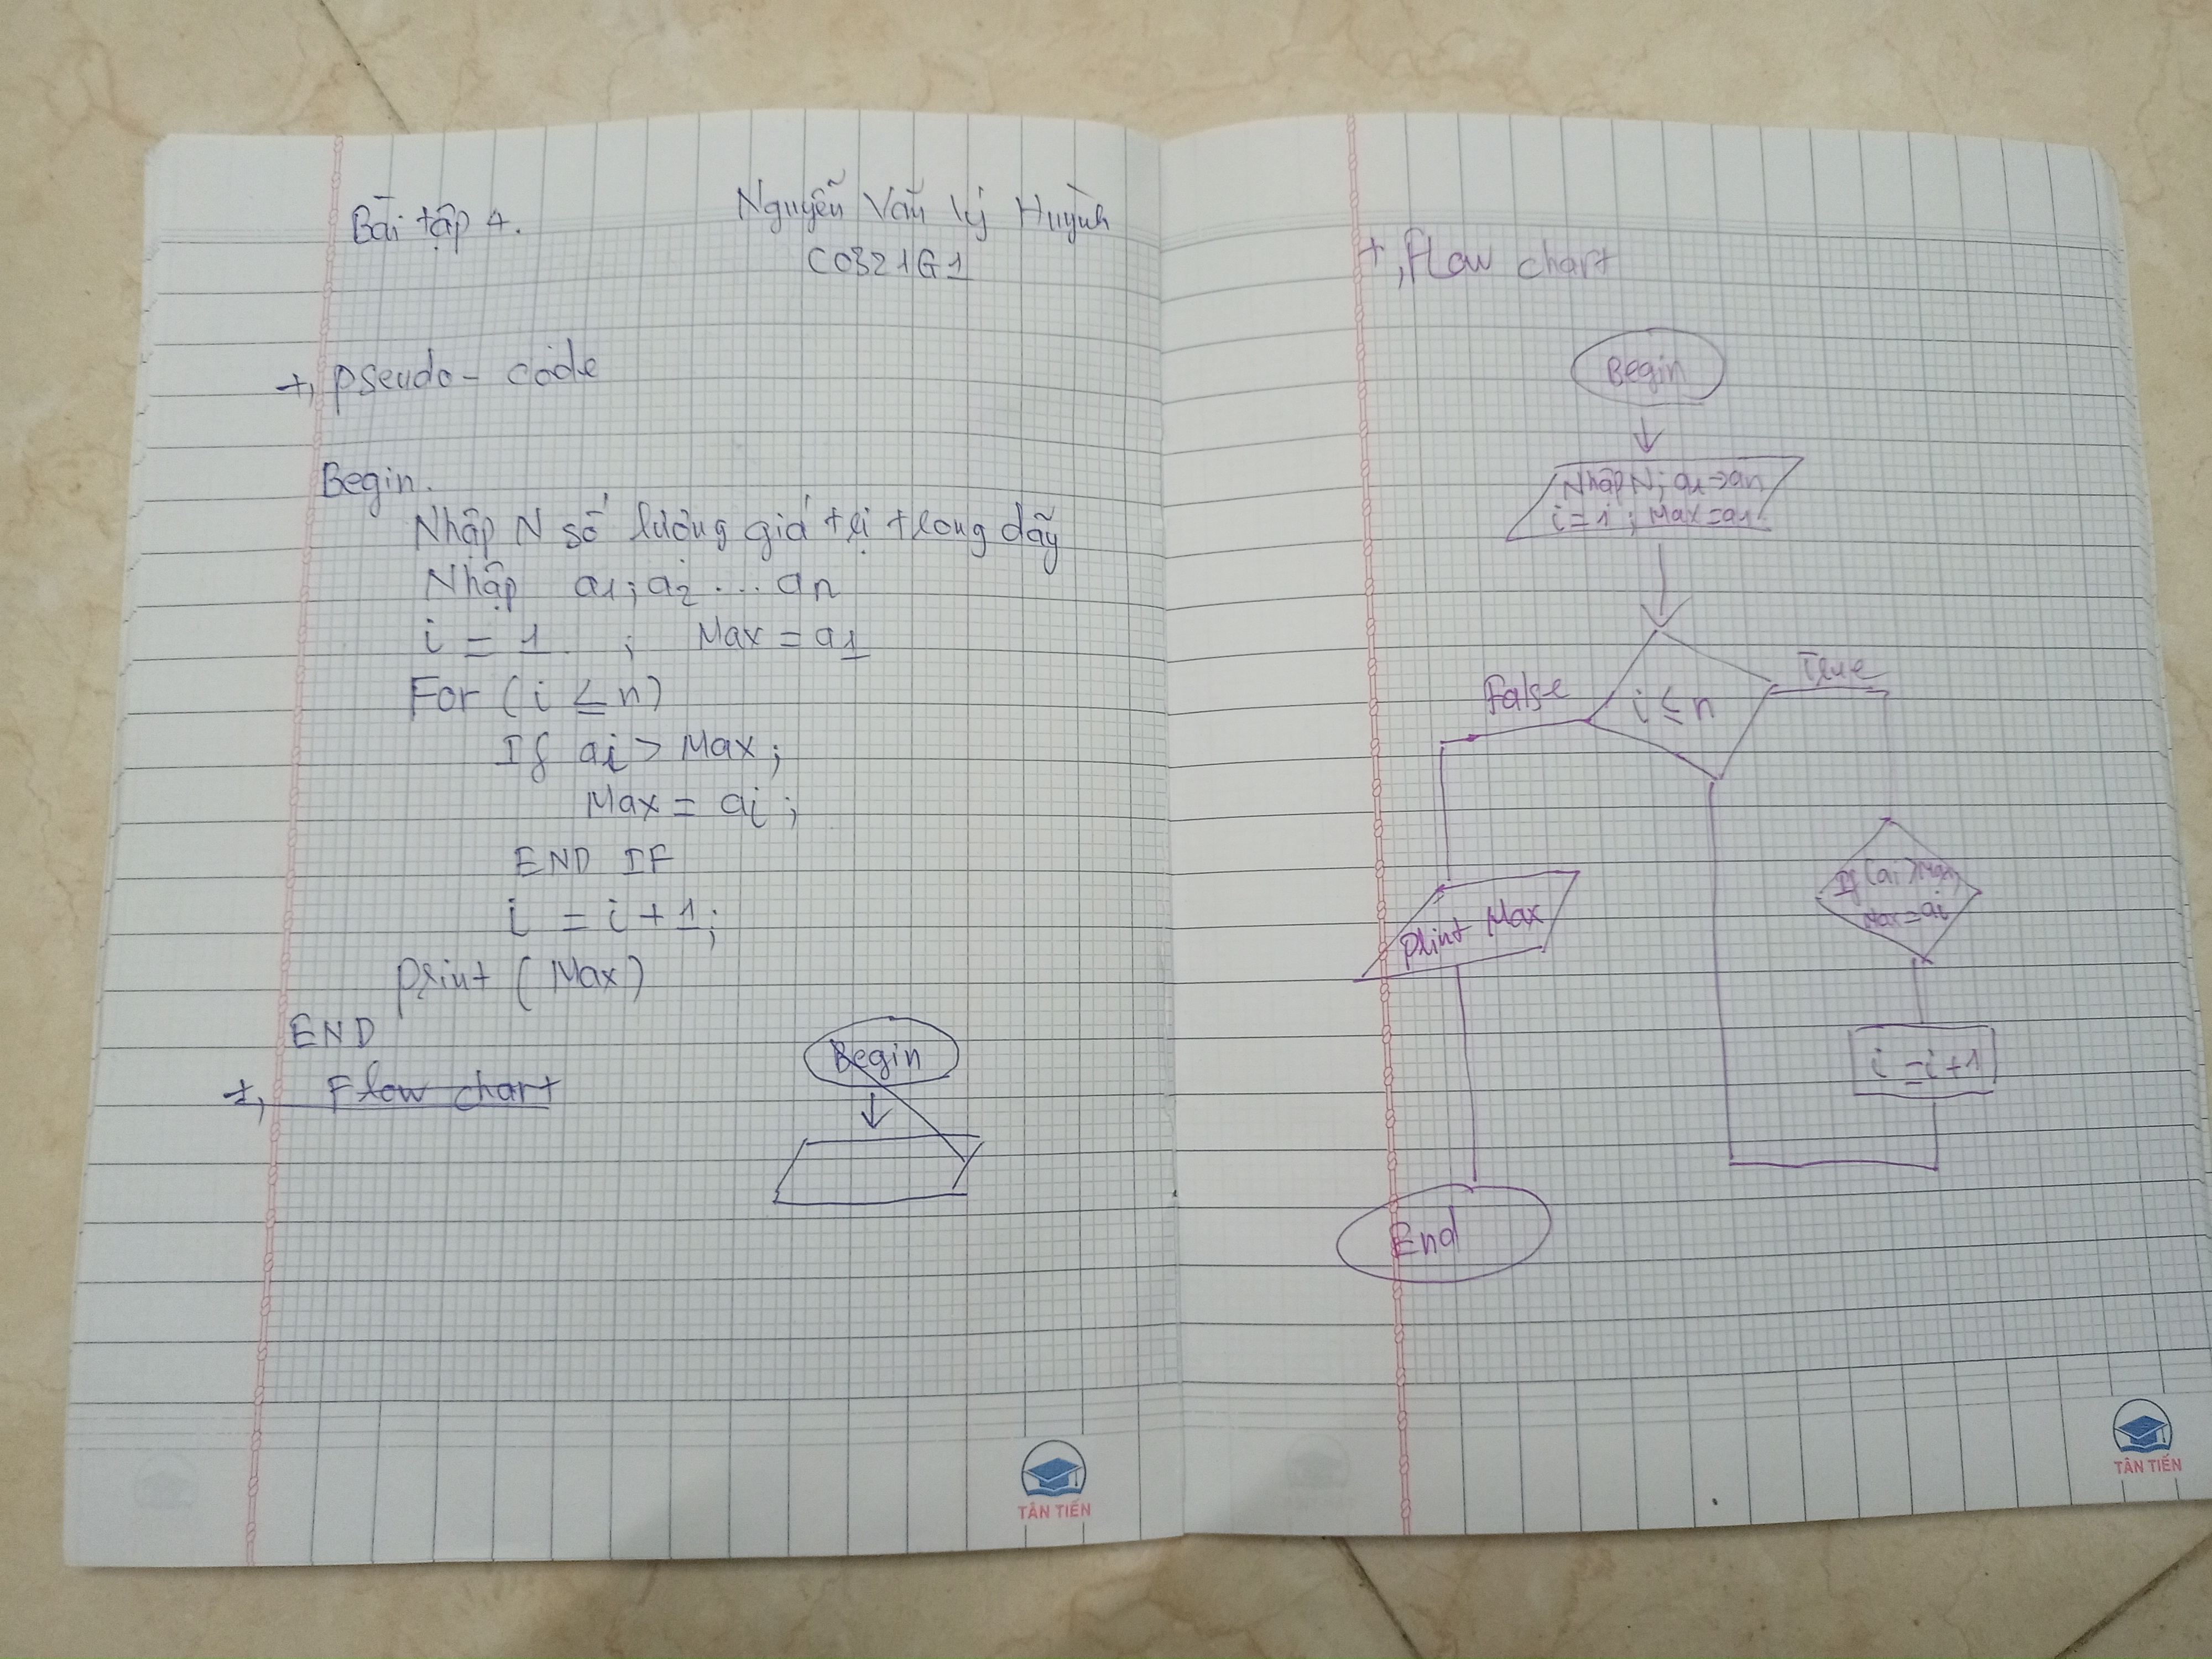 Bài tập 4.
Nguyễn Văn Lý Huỳnh
C0321G1
+, Pseudo - code
Begin.
Nhập N số lượng giá trị trong dãy
Nhập a1; a2 ... an
i = 1 ; Max = a1
For (i ≤ n)
If ai > Max;
Max = ai;
END IF
i = i + 1;
print (Max)
END
+, Flow chart
Begin
TÂN TIẾN
+, Flow chart
Begin
Nhập N; a1 -> an
i = 1; Max = a1
i ≤ n
False
True
If (ai > Max)
Max = ai
print Max
i = i + 1
End
TÂN TIẾN